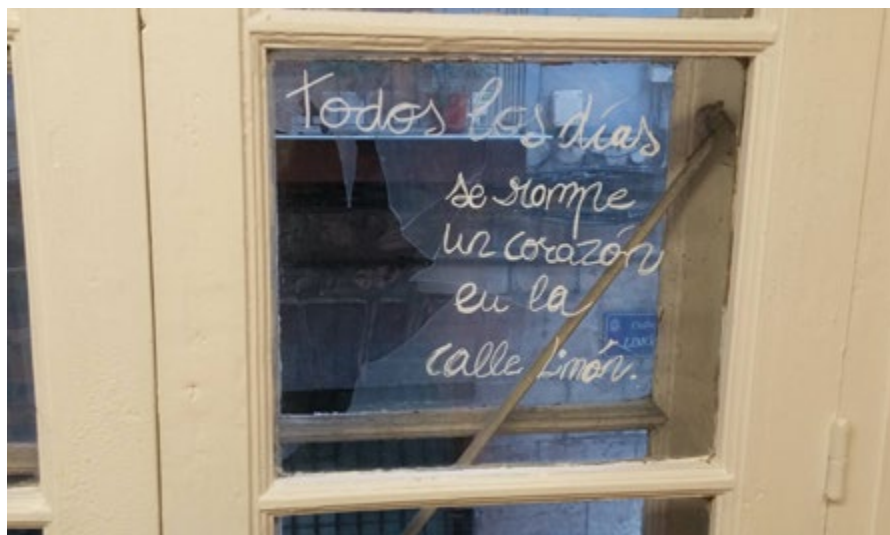 Todos los días
se rompe
un corazón
en la
calle Limón.